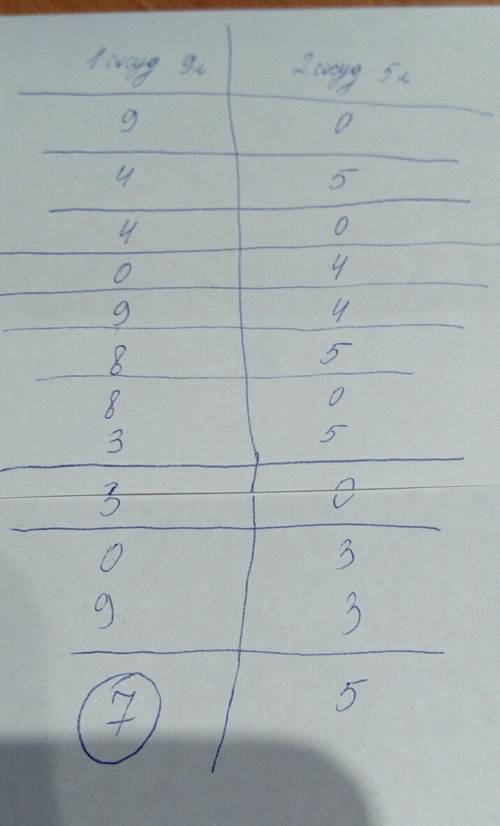 1 сосуд 9л 2 сосуд 5л
9 0
4 5
4 0
0 4
9 4
8 5
8 0
3 5
3 0
0 3
9 3
7 5